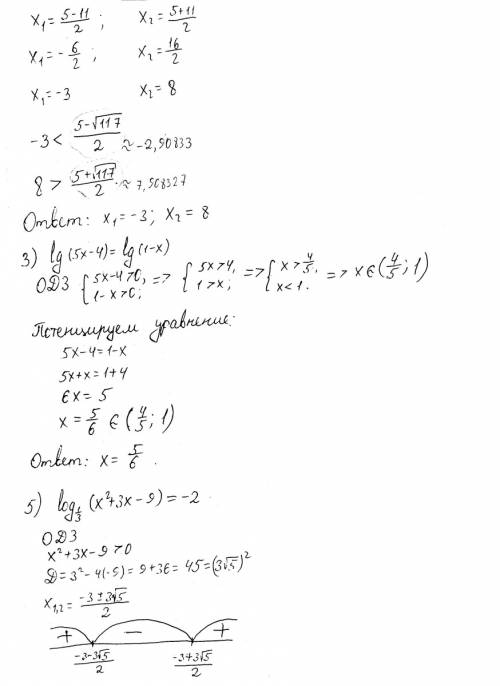 x₁ = (5-11)/2 ; x₂ = (5+11)/2
x₁ = -6/2 ; x₂ = 16/2
x₁ = -3 x₂ = 8
-3 < (5-√117)/2 ≈ -2,90833
8 > (5+√117)/2 ≈ 7,908327
Ответ: x₁ = -3; x₂ = 8
3) lg(5x-4) = lg(1-x)
ОДЗ { 5x-4>0, 1-x>0; => { 5x>4, 1>x; => { x>4/5, x<1. => x∈(4/5; 1)
Потенцируем уравнение:
5x-4=1-x
5x+x=1+4
6x = 5
x = 5/6 ∈ (4/5; 1)
Ответ: x = 5/6 .
5) log_{1/3} (x²+3x-9) = -2
ОДЗ
x²+3x-9>0
D=3²-4(-9)=9+36=45=(3√5)²
x₁,₂ = (-3±3√5)/2
+ - +
(-3-3√5)/2 (-3+3√5)/2